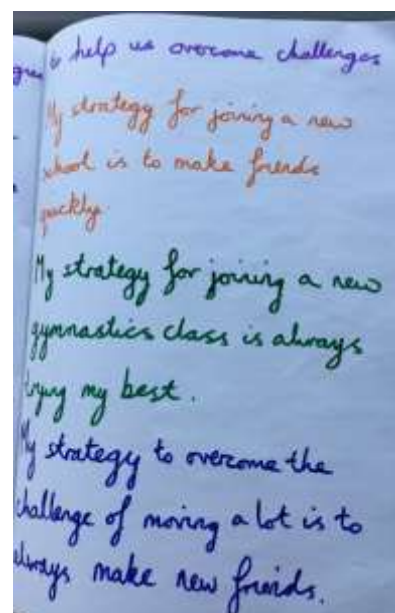 to help us overcome challenges
My strategy for joining a new
school is to make friends
quickly.
My strategy for joining a new
gymnastics class is always
trying my best.
My strategy to overcome the
challenge of moving a lot is to
always make new freinds.